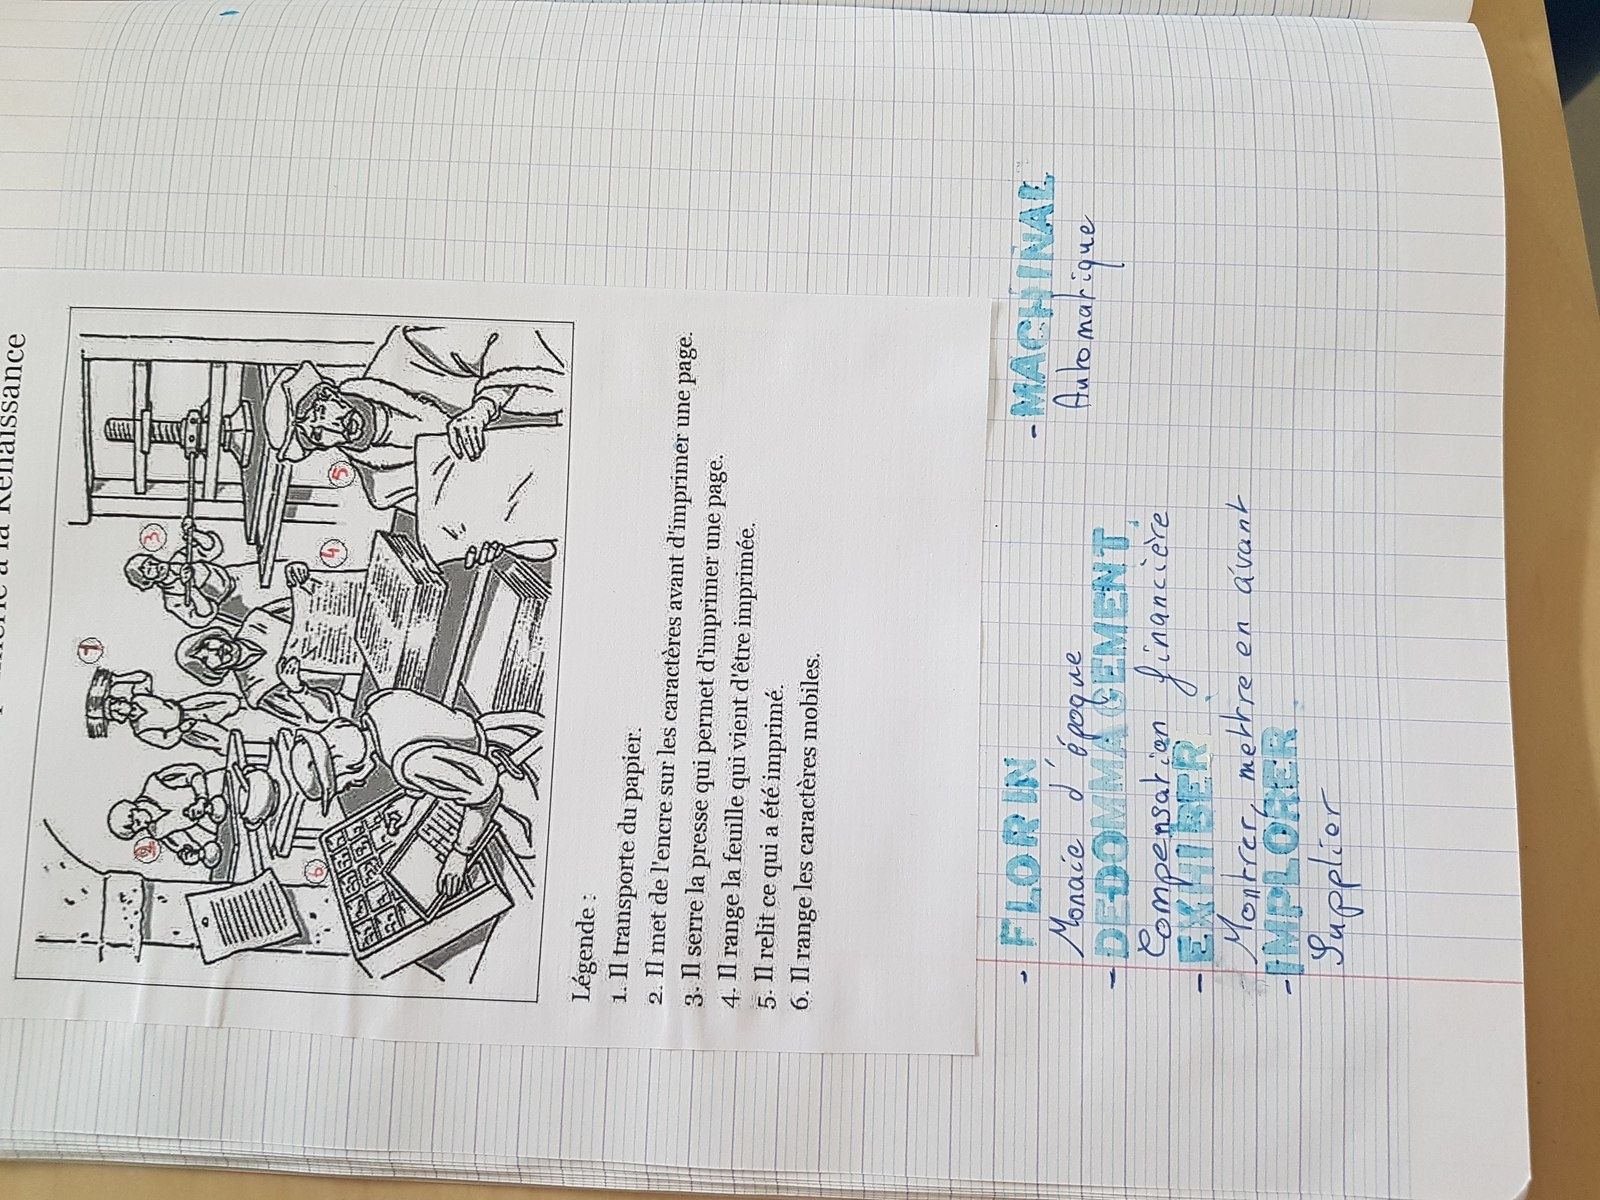 à la Renaissance
1
2
3
4
5
6
Légende :
1. Il transporte du papier.
2. Il met de l'encre sur les caractères avant d'imprimer une page.
3. Il serre la presse qui permet d'imprimer une page.
4. Il range la feuille qui vient d'être imprimée.
5. Il relit ce qui a été imprimé.
6. Il range les caractères mobiles.
- FLORIN
Monaie d'époque
- DEDOMMAGEMENT
Compensation financière
- EXHIBER
Montrer, mettre en avant
- IMPLORER
Supplier
- MACHINAL
Automatique